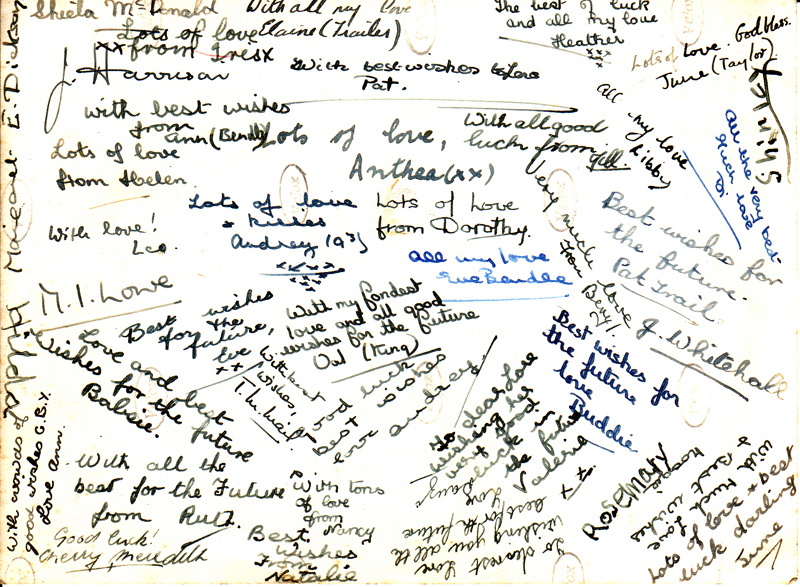 Sheila McDonald
With all my love
Elaine (Trailer)
Lots of love
xx from Iris x
The best of luck
and all my love
Heather
xxx
Lots of love. God bless.
June (Taylor)
Shirley
J. Harrison
With best wishes & love
Pat.
E. Dickson
Margaret
with best wishes
from
Ann (Bendy)
Lots of love,
Anthea (xx)
With all good
luck from
Gill
all my love
Libby
All the very best
Much love
Di
Lots of love
from Helen
Lots of love
& kisses
Audrey (93)
Lots of Love
from Dorothy.
With love!
Leo.
all my love
Eve Bendle
Very much love
from Beryl.
Best wishes for
the future.
Pat Trail
M. I. Lowe
Best wishes
for the
future,
Eve
xx
With my fondest
love and all good
wishes for the future
Val (King)
J. Whitehall
Love and best
Wishes for the future
Babsie.
With best
wishes,
Good luck
best wishes
love Audrey
Best wishes for
the future
love
Buddie
To dear Love
wishing her
very good
luck in
the future
Valerie
xx
With crowds of
good wishes G.B.X
Love Ann.
With all the
best for the Future
from Ruth.
With tons
of love
from
Nancy
Good luck!
Cherry Meredith
Best
Wishes
From
Natalie
To dearest Love
Wishing you all the
best for the future
Love
Rosemary
With much love
& best wishes
Lots of love & best
luck darling
June